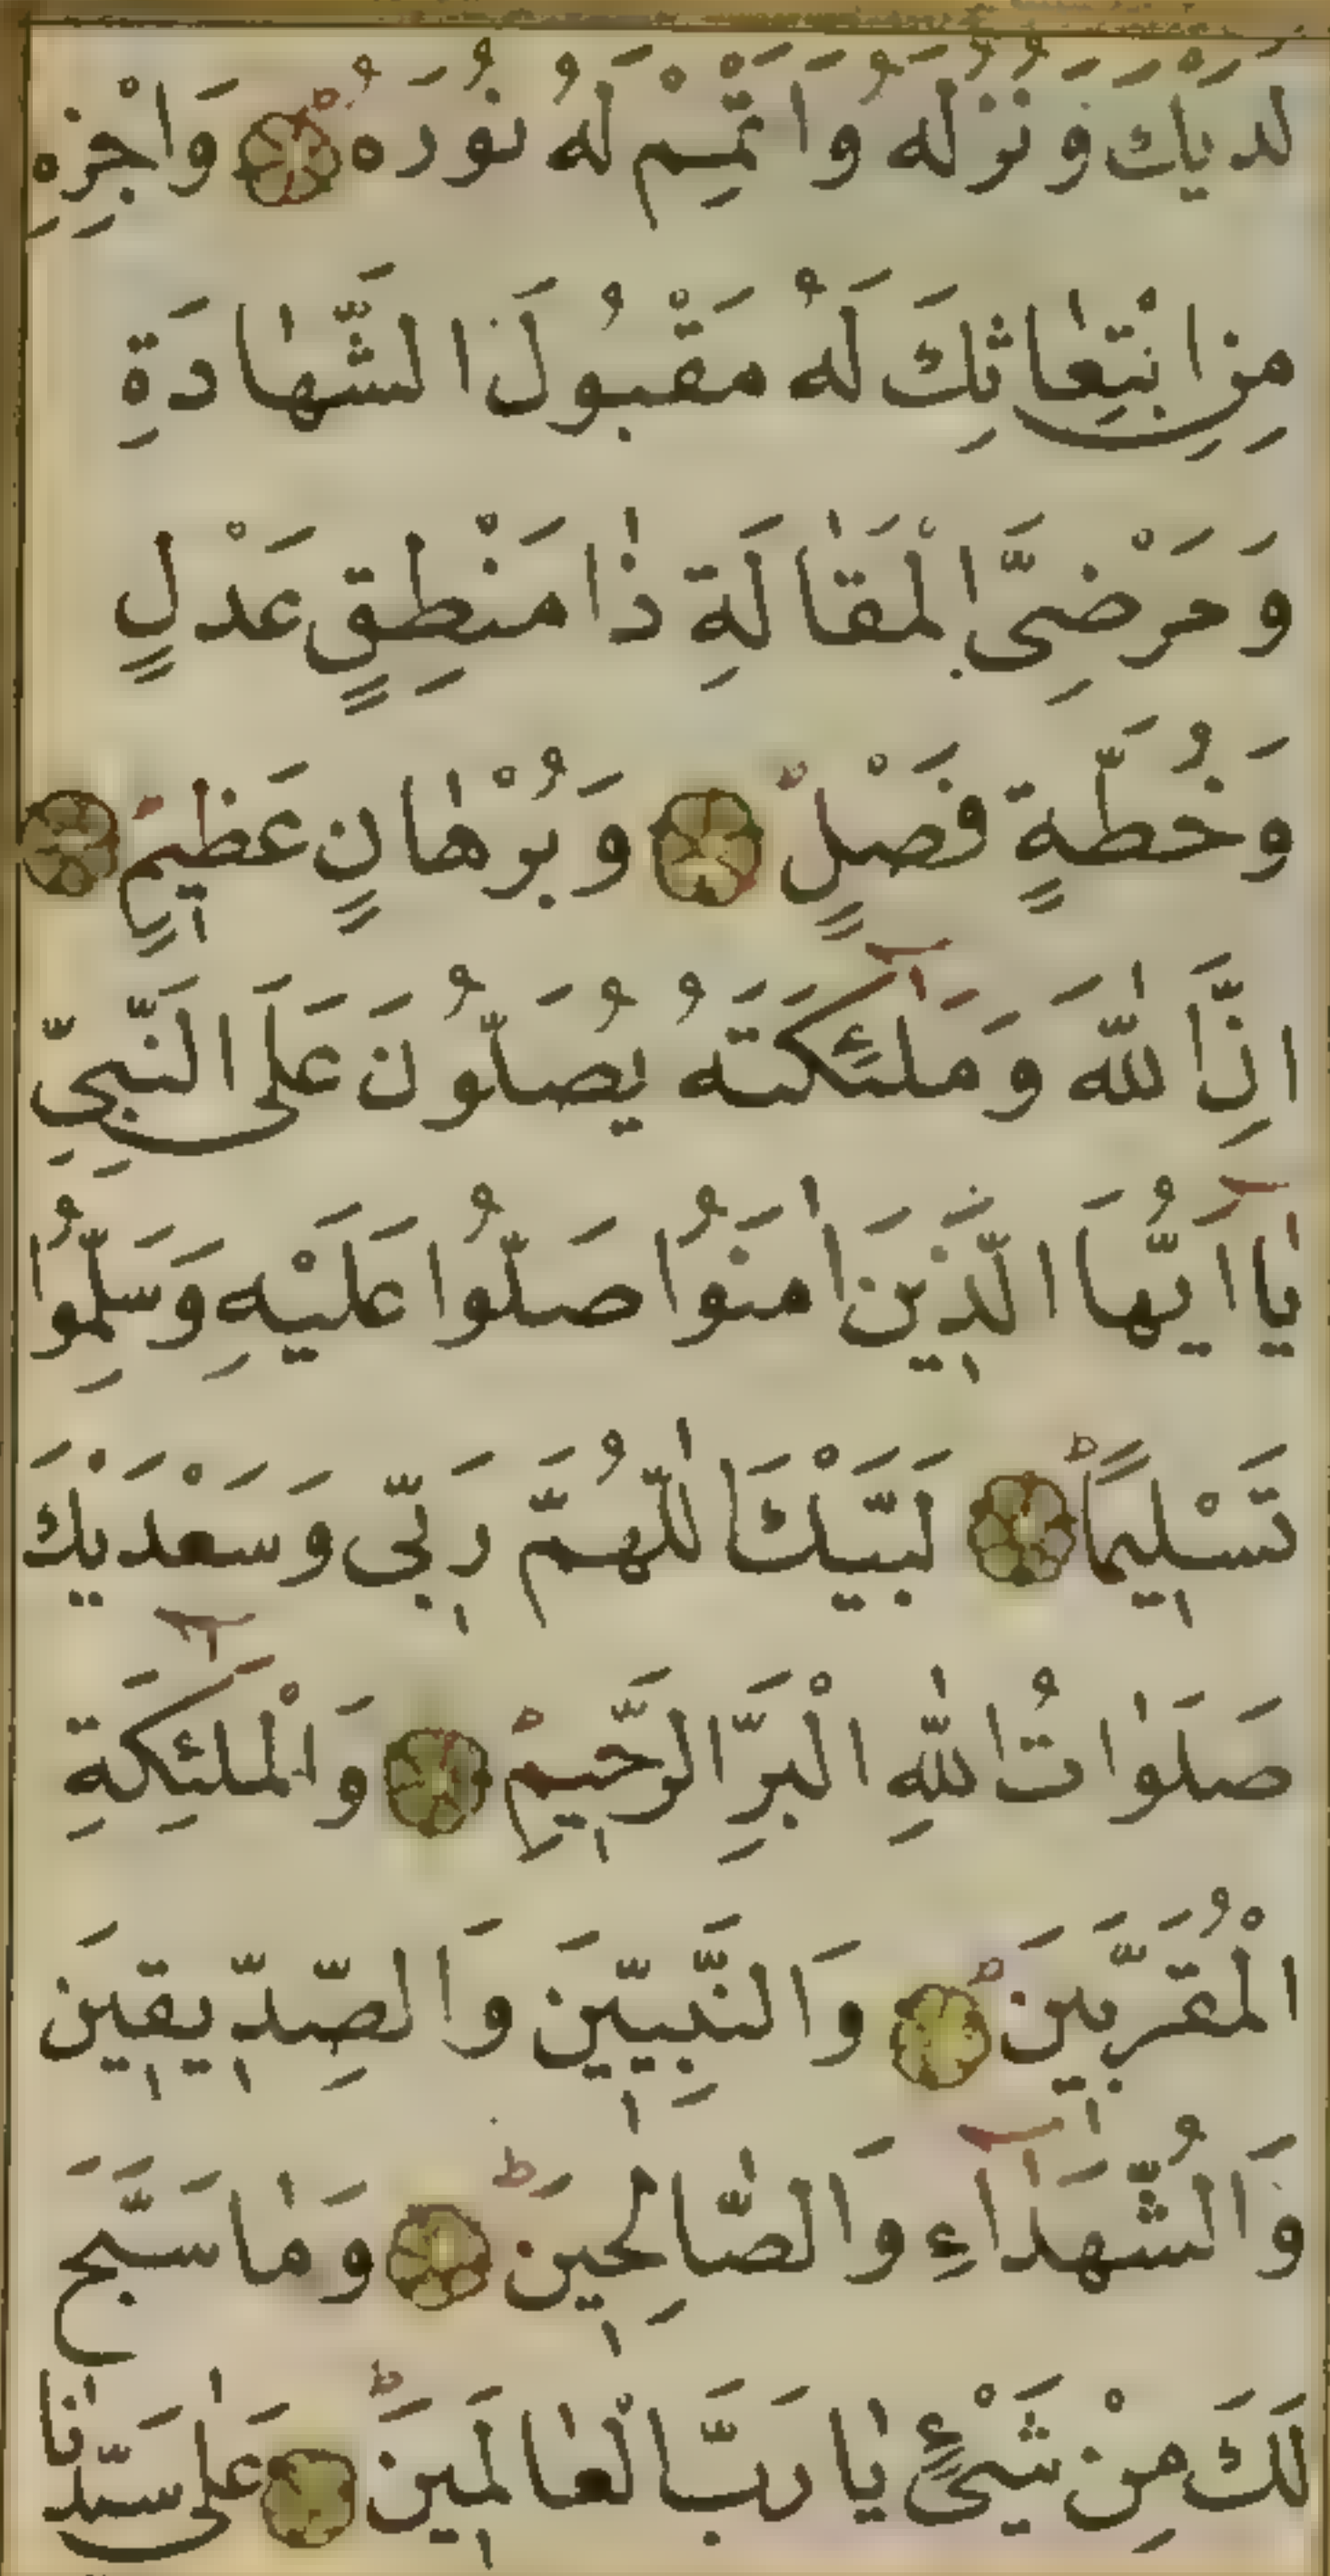 لَدَيْكَ وَنُزُلَهُ وَاَتْمِمْ لَهُ نُورَهُ ۞ وَاجْزِهِ
مِنِ انْبِتِعَاثِكَ لَهُ مَقْبُولَ الشَّهَادَةِ
وَمَرْضِىَّ الْمَقَالَةِ ذَا مَنْطِقٍ عَدْلٍ
وَخُطَّةٍ فَصْلٍ ۞ وَبُرْهَانٍ عَظِيمٍ ۞
اِنَّ اللّٰهَ وَمَلٰٓئِكَتَهُ يُصَلُّونَ عَلَى النَّبِىِّ
يَآ اَيُّهَا الَّذِينَ اٰمَنُوا صَلُّوا عَلَيْهِ وَسَلِّمُوا
تَسْلِيمًا ۞ لَبَّيْكَ اللّٰهُمَّ رَبِّى وَسَعْدَيْكَ
صَلَوٰاتُ اللّٰهِ الْبَرِّ الرَّحِيمِ ۞ وَالْمَلٰٓئِكَةِ
الْمُقَرَّبِينَ ۞ وَالنَّبِيِّينَ وَالصِّدِّيقِينَ
وَالشُّهَدَآءِ وَالصَّالِحِينَ ۞ وَمَا سَبَّحَ
لَكَ مِنْ شَيْئٍ يَا رَبَّ الْعَالَمِينَ ۞ عَلٰى سَيِّدِنَا